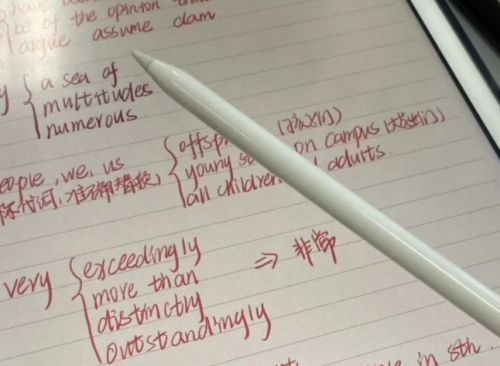 have
be of the opinion that
argue assume claim.
y { a sea of
multitudes
numerous
people, we, us
代词，准确替换)
{ offsp (孩子们)
young s on campus (大学生们)
all children adults.
very { exceedingly
more than
distinctry
outstandingly
⇒ 非常
in sth.